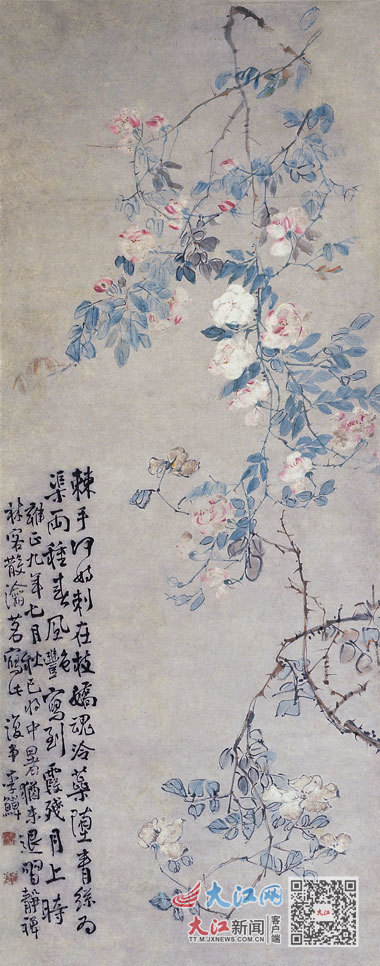 棘手何妨刺在枝嬌魂冷蘂墮青絲為
渠兩種春風艷寫到霞殘月上時
雍正九年七月秋已將中暑猶未退習靜禪
林客散瀹茗寫此 復堂李鱓
大江网
大江新闻
客户端
TT.M.JXNEWS.COM.CN
大江